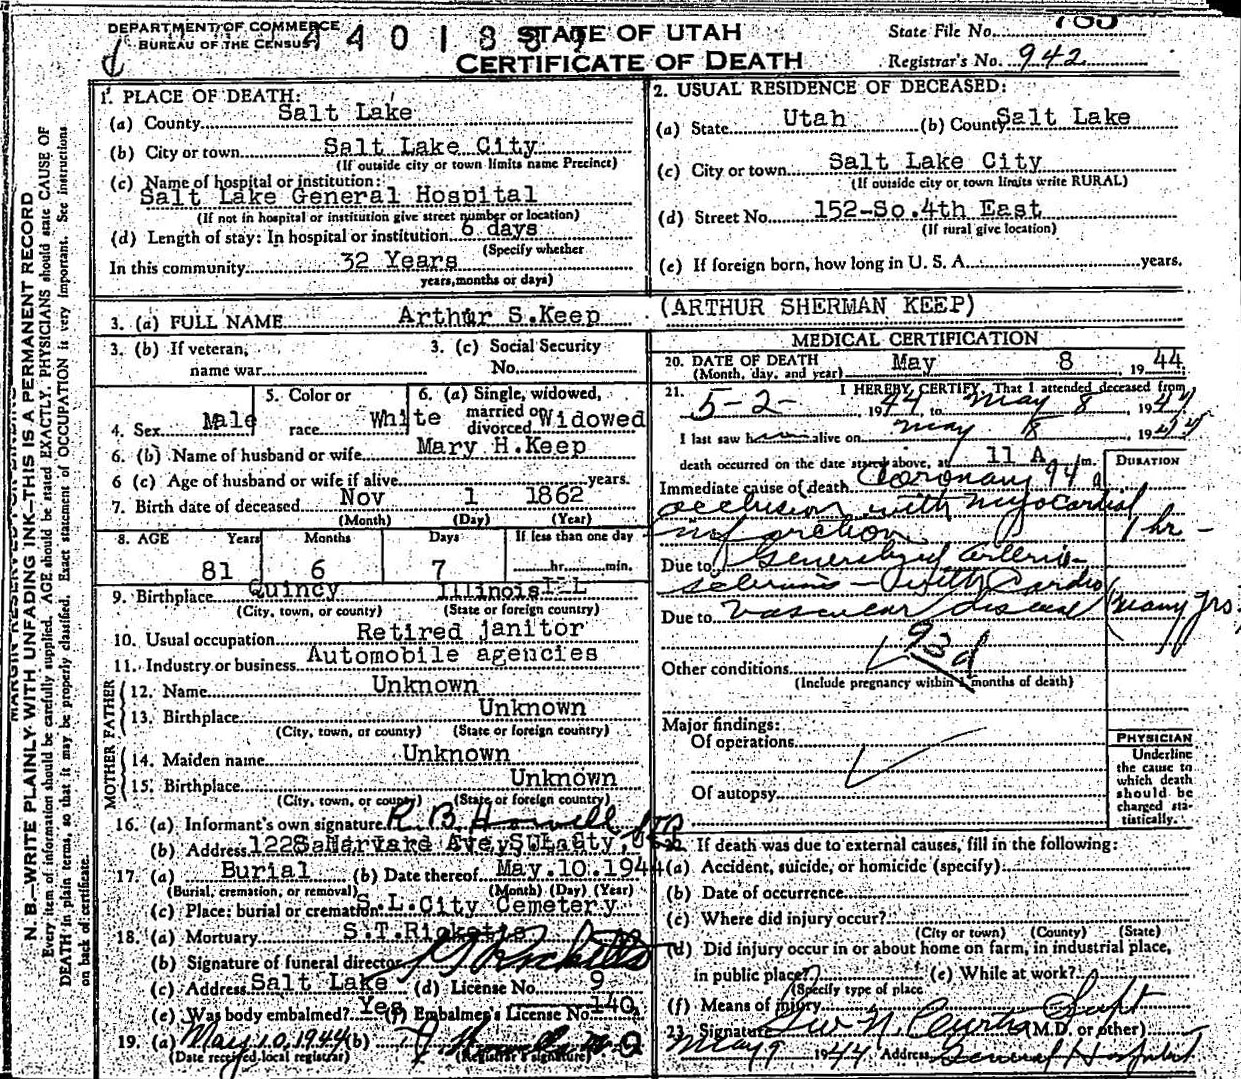 DEPARTMENT OF COMMERCE
BUREAU OF THE CENSUS
STATE OF UTAH
CERTIFICATE OF DEATH
State File No.
Registrar's No. 942
N. B.—WRITE PLAINLY WITH UNFADING INK—THIS IS A PERMANENT RECORD
Every item of information should be carefully supplied. AGE should be stated EXACTLY. PHYSICIANS should state CAUSE OF
DEATH in plain terms, so that it may be properly classified. Exact statement of OCCUPATION is very important. See instructions
on back of certificate.
1. PLACE OF DEATH:
(a) County Salt Lake
(b) City or town Salt Lake City
(If outside city or town limits name Precinct)
(c) Name of hospital or institution:
Salt Lake General Hospital
(If not in hospital or institution give street number or location)
(d) Length of stay: In hospital or institution 6 days
(Specify whether
In this community 32 Years
years, months or days)
2. USUAL RESIDENCE OF DECEASED:
(a) State Utah (b) County Salt Lake
(c) City or town Salt Lake City
(If outside city or town limits write RURAL)
(d) Street No. 152-So.4th East
(If rural give location)
(e) If foreign born, how long in U. S. A. years.
3. (a) FULL NAME Arthur S.Keep
(ARTHUR SHERMAN KEEP)
3. (b) If veteran,
name war
3. (c) Social Security
No.
4. Sex Male
5. Color or
race White
6. (a) Single, widowed,
married or
divorced Widowed
6. (b) Name of husband or wife Mary H.Keep
6 (c) Age of husband or wife if alive years.
7. Birth date of deceased Nov 1 1862
(Month) (Day) (Year)
8. AGE Years Months Days If less than one day
81 6 7 hr. min.
9. Birthplace Quincy Illinois ILL
(City, town, or county) (State or foreign country)
10. Usual occupation Retired janitor
11. Industry or business Automobile agencies
FATHER
12. Name Unknown
13. Birthplace Unknown
(City, town, or county) (State or foreign country)
MOTHER
14. Maiden name Unknown
15. Birthplace Unknown
(City, town, or county) (State or foreign country)
16. (a) Informant's own signature R. B. Howell
(b) Address
17. (a) Burial (b) Date thereof May.10.1944
(Burial, cremation, or removal) (Month) (Day) (Year)
(c) Place: burial or cremation S.L.City Cemetery
18. (a) Mortuary S.T.Ricketts
(b) Signature of funeral director Ricketts
(c) Address Salt Lake (d) License No. 9
(e) Was body embalmed? Yes (f) Embalmer's License No. 140
19. (a) May 10, 1944 (b)
(Date received local registrar) (Registrar's signature)
MEDICAL CERTIFICATION
20. DATE OF DEATH May 8 , 1944
(Month, day, and year)
21. I HEREBY CERTIFY, That I attended deceased from
5-2- 1944 to May 8, 1944
I last saw him alive on May 8 1944
death occurred on the date stated above, at 11 A m.
DURATION
Immediate cause of death Coronary 94 a
occlusion with myocardial
infarction 1 hr-
Due to Generalized Arterio-
sclerosis - with Cardio
Due to vascular disease (many yrs.
93d
Other conditions
(Include pregnancy within 3 months of death)
Major findings:
Of operations
Of autopsy
PHYSICIAN
Underline
the cause to
which death
should be
charged sta-
tistically.
22. If death was due to external causes, fill in the following:
(a) Accident, suicide, or homicide (specify)
(b) Date of occurrence
(c) Where did injury occur?
(City or town) (County) (State)
(d) Did injury occur in or about home on farm, in industrial place,
in public place? (e) While at work?
(Specify type of place
(f) Means of injury Supt
23. Signature N. Curtis (M.D. or other)
May 9 1944 Address General Hospital